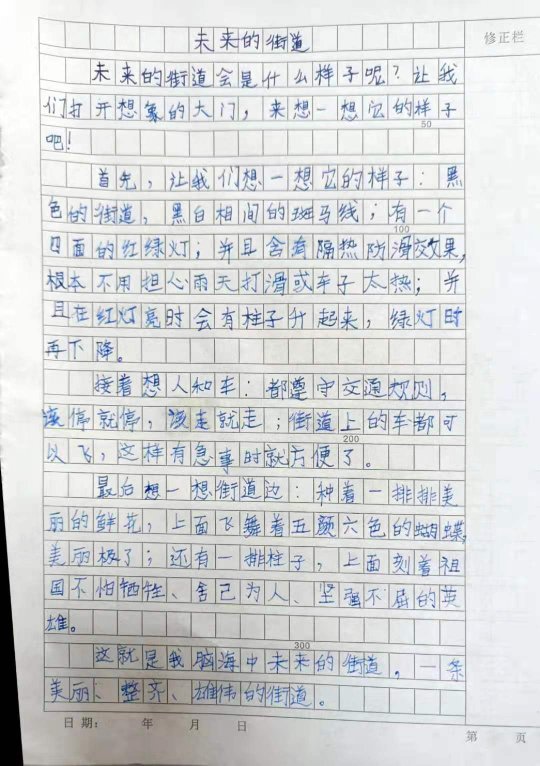 修正栏
未来的街道
未来的街道会是什么样子呢？让我
们打开想象的大门，来想一想它的样子
50
吧！
首先，让我们想一想它的样子：黑
色的街道，黑白相间的斑马线；有一个
100
四面的红绿灯；并且含有隔热防滑效果，
根本不用担心雨天打滑或车子太热；并
且在红灯亮时会有柱子升起来，绿灯时
再下降。
接着想人和车：都遵守交通规则，
该停就停，该走就走；街道上的车都可
200
以飞，这样有急事时就方便了。
最后想一想街道边：种着一排排美
丽的鲜花，上面飞舞着五颜六色的蝴蝶，
美丽极了；还有一排柱子，上面刻着祖
国不怕牺牲、舍己为人、坚强不屈的英
雄。
300
这就是我脑海中未来的街道，一条
美丽、整齐、雄伟的街道。
日期： 年 月 日
第 页